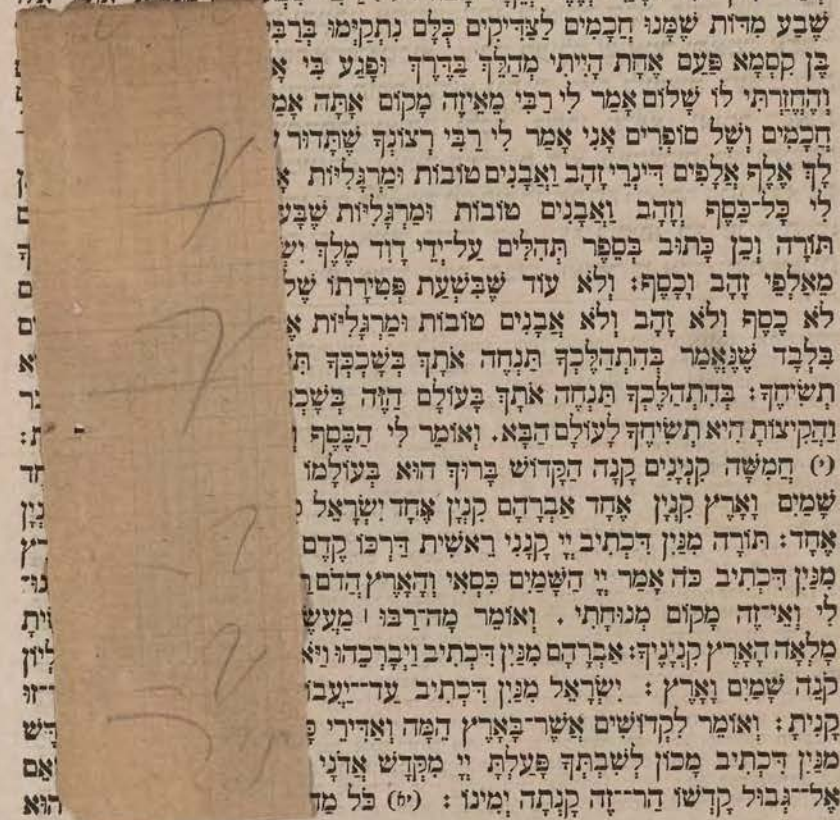 שֶׁבַע מִדּוֹת שֶׁמָּנוּ חֲכָמִים לַצַּדִּיקִים כֻּלָּם נִתְקַיְּמוּ
בֶּן קִסְמָא פַּעַם אַחַת הָיִיתִי מְהַלֵּךְ בַּדֶּרֶךְ וּפָגַע בִּי
וְהֶחֱזַרְתִּי לוֹ שָׁלוֹם אָמַר לִי רַבִּי מֵאֵיזֶה מָקוֹם אַתָּה
חֲכָמִים וְשֶׁל סוֹפְרִים אָנִי אָמַר לִי רַבִּי רְצוֹנְךָ שֶׁתָּדוּר
לְךָ אֶלֶף אֲלָפִים דִּינְרֵי זָהָב וַאֲבָנִים טוֹבוֹת וּמַרְגָּלִיּוֹת
לִי כָּל־כֶּסֶף וְזָהָב וַאֲבָנִים טוֹבוֹת וּמַרְגָּלִיּוֹת
תּוֹרָה וְכֵן כָּתוּב בְּסֵפֶר תְּהִלִּים עַל־יְדֵי דָוִד מֶלֶךְ
מֵאַלְפֵי זָהָב וָכָסֶף: וְלֹא עוֹד שֶׁבִּשְׁעַת פְּטִירָתוֹ
לֹא כֶסֶף וְלֹא זָהָב וְלֹא אֲבָנִים טוֹבוֹת וּמַרְגָּלִיּוֹת
בִּלְבַד שֶׁנֶּאֱמַר בְּהִתְהַלֶּכְךָ תַּנְחֶה אֹתָךְ בְּשָׁכְבְּךָ
תְשִׂיחֶךָ: בְּהִתְהַלֶּכְךָ תַּנְחֶה אֹתָךְ בָּעוֹלָם הַזֶּה
וַהֲקִיצוֹתָ הִיא תְשִׂיחֶךָ לָעוֹלָם הַבָּא. וְאוֹמֵר לִי הַכֶּסֶף
(י) חֲמִשָּׁה קִנְיָנִים קָנָה הַקָּדוֹשׁ בָּרוּךְ הוּא בְּעוֹלָמוֹ
שָׁמַיִם וָאָרֶץ קִנְיָן אֶחָד אַבְרָהָם קִנְיָן אֶחָד יִשְׂרָאֵל
אֶחָד: תּוֹרָה מִנַּיִן דִּכְתִיב יְיָ קָנָנִי רֵאשִׁית דַּרְכּוֹ קֶדֶם
מִנַּיִן דִּכְתִיב כֹּה אָמַר יְיָ הַשָּׁמַיִם כִּסְאִי וְהָאָרֶץ הֲדֹם
לִי וְאֵי־זֶה מָקוֹם מְנוּחָתִי. וְאוֹמֵר מָה־רַבּוּ ׀
מָלְאָה הָאָרֶץ קִנְיָנֶיךָ: אַבְרָהָם מִנַּיִן דִּכְתִיב וַיְבָרְכֵהוּ
קֹנֵה שָׁמַיִם וָאָרֶץ: יִשְׂרָאֵל מִנַּיִן דִּכְתִיב עַד־יַעֲבוֹ
קָנִיתָ: וְאוֹמֵר לִקְדוֹשִׁים אֲשֶׁר־בָּאָרֶץ הֵמָּה וְאַדִּירֵי
מִנַּיִן דִּכְתִיב מָכוֹן לְשִׁבְתְּךָ פָּעַלְתָּ יְיָ מִקְּדָשׁ אֲדֹנָי
אֶל־גְּבוּל קָדְשׁוֹ הַר־זֶה קָנְתָה יְמִינוֹ: (יא) כֹּל הוּא